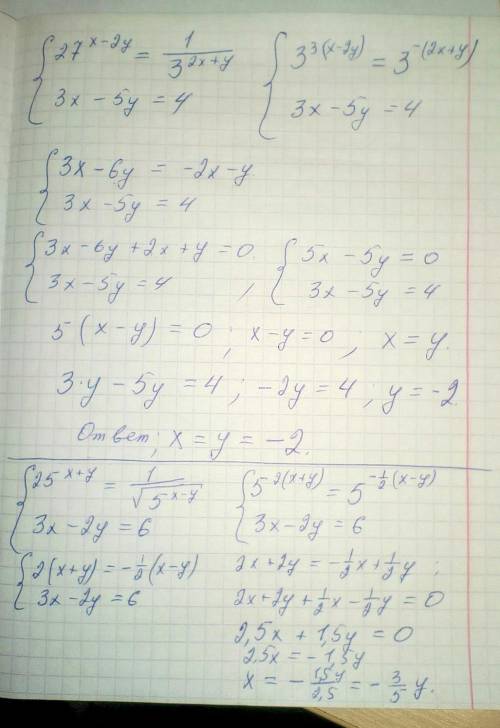 { 27^(x-2y) = 1/3^(2x+y)
3x - 5y = 4
{ 3^(3(x-2y)) = 3^(-(2x+y))
3x - 5y = 4
{ 3x - 6y = -2x - y
3x - 5y = 4
{ 3x - 6y + 2x + y = 0
3x - 5y = 4 ,
{ 5x - 5y = 0
3x - 5y = 4
5(x - y) = 0 ; x - y = 0 ; x = y.
3·y - 5y = 4 ; -2y = 4 ; y = -2.
Ответ; x = y = -2.
{ 25^(x+y) = 1/√5^(x-y)
3x - 2y = 6
{ 5^(2(x+y)) = 5^(-1/2(x-y))
3x - 2y = 6
{ 2(x+y) = -1/2(x-y)
3x - 2y = 6
2x + 2y = -1/2x + 1/2y ;
2x + 2y + 1/2x - 1/2y = 0
2,5x + 1,5y = 0
2,5x = -1,5y
x = -1,5y/2,5 = -3/5 y.